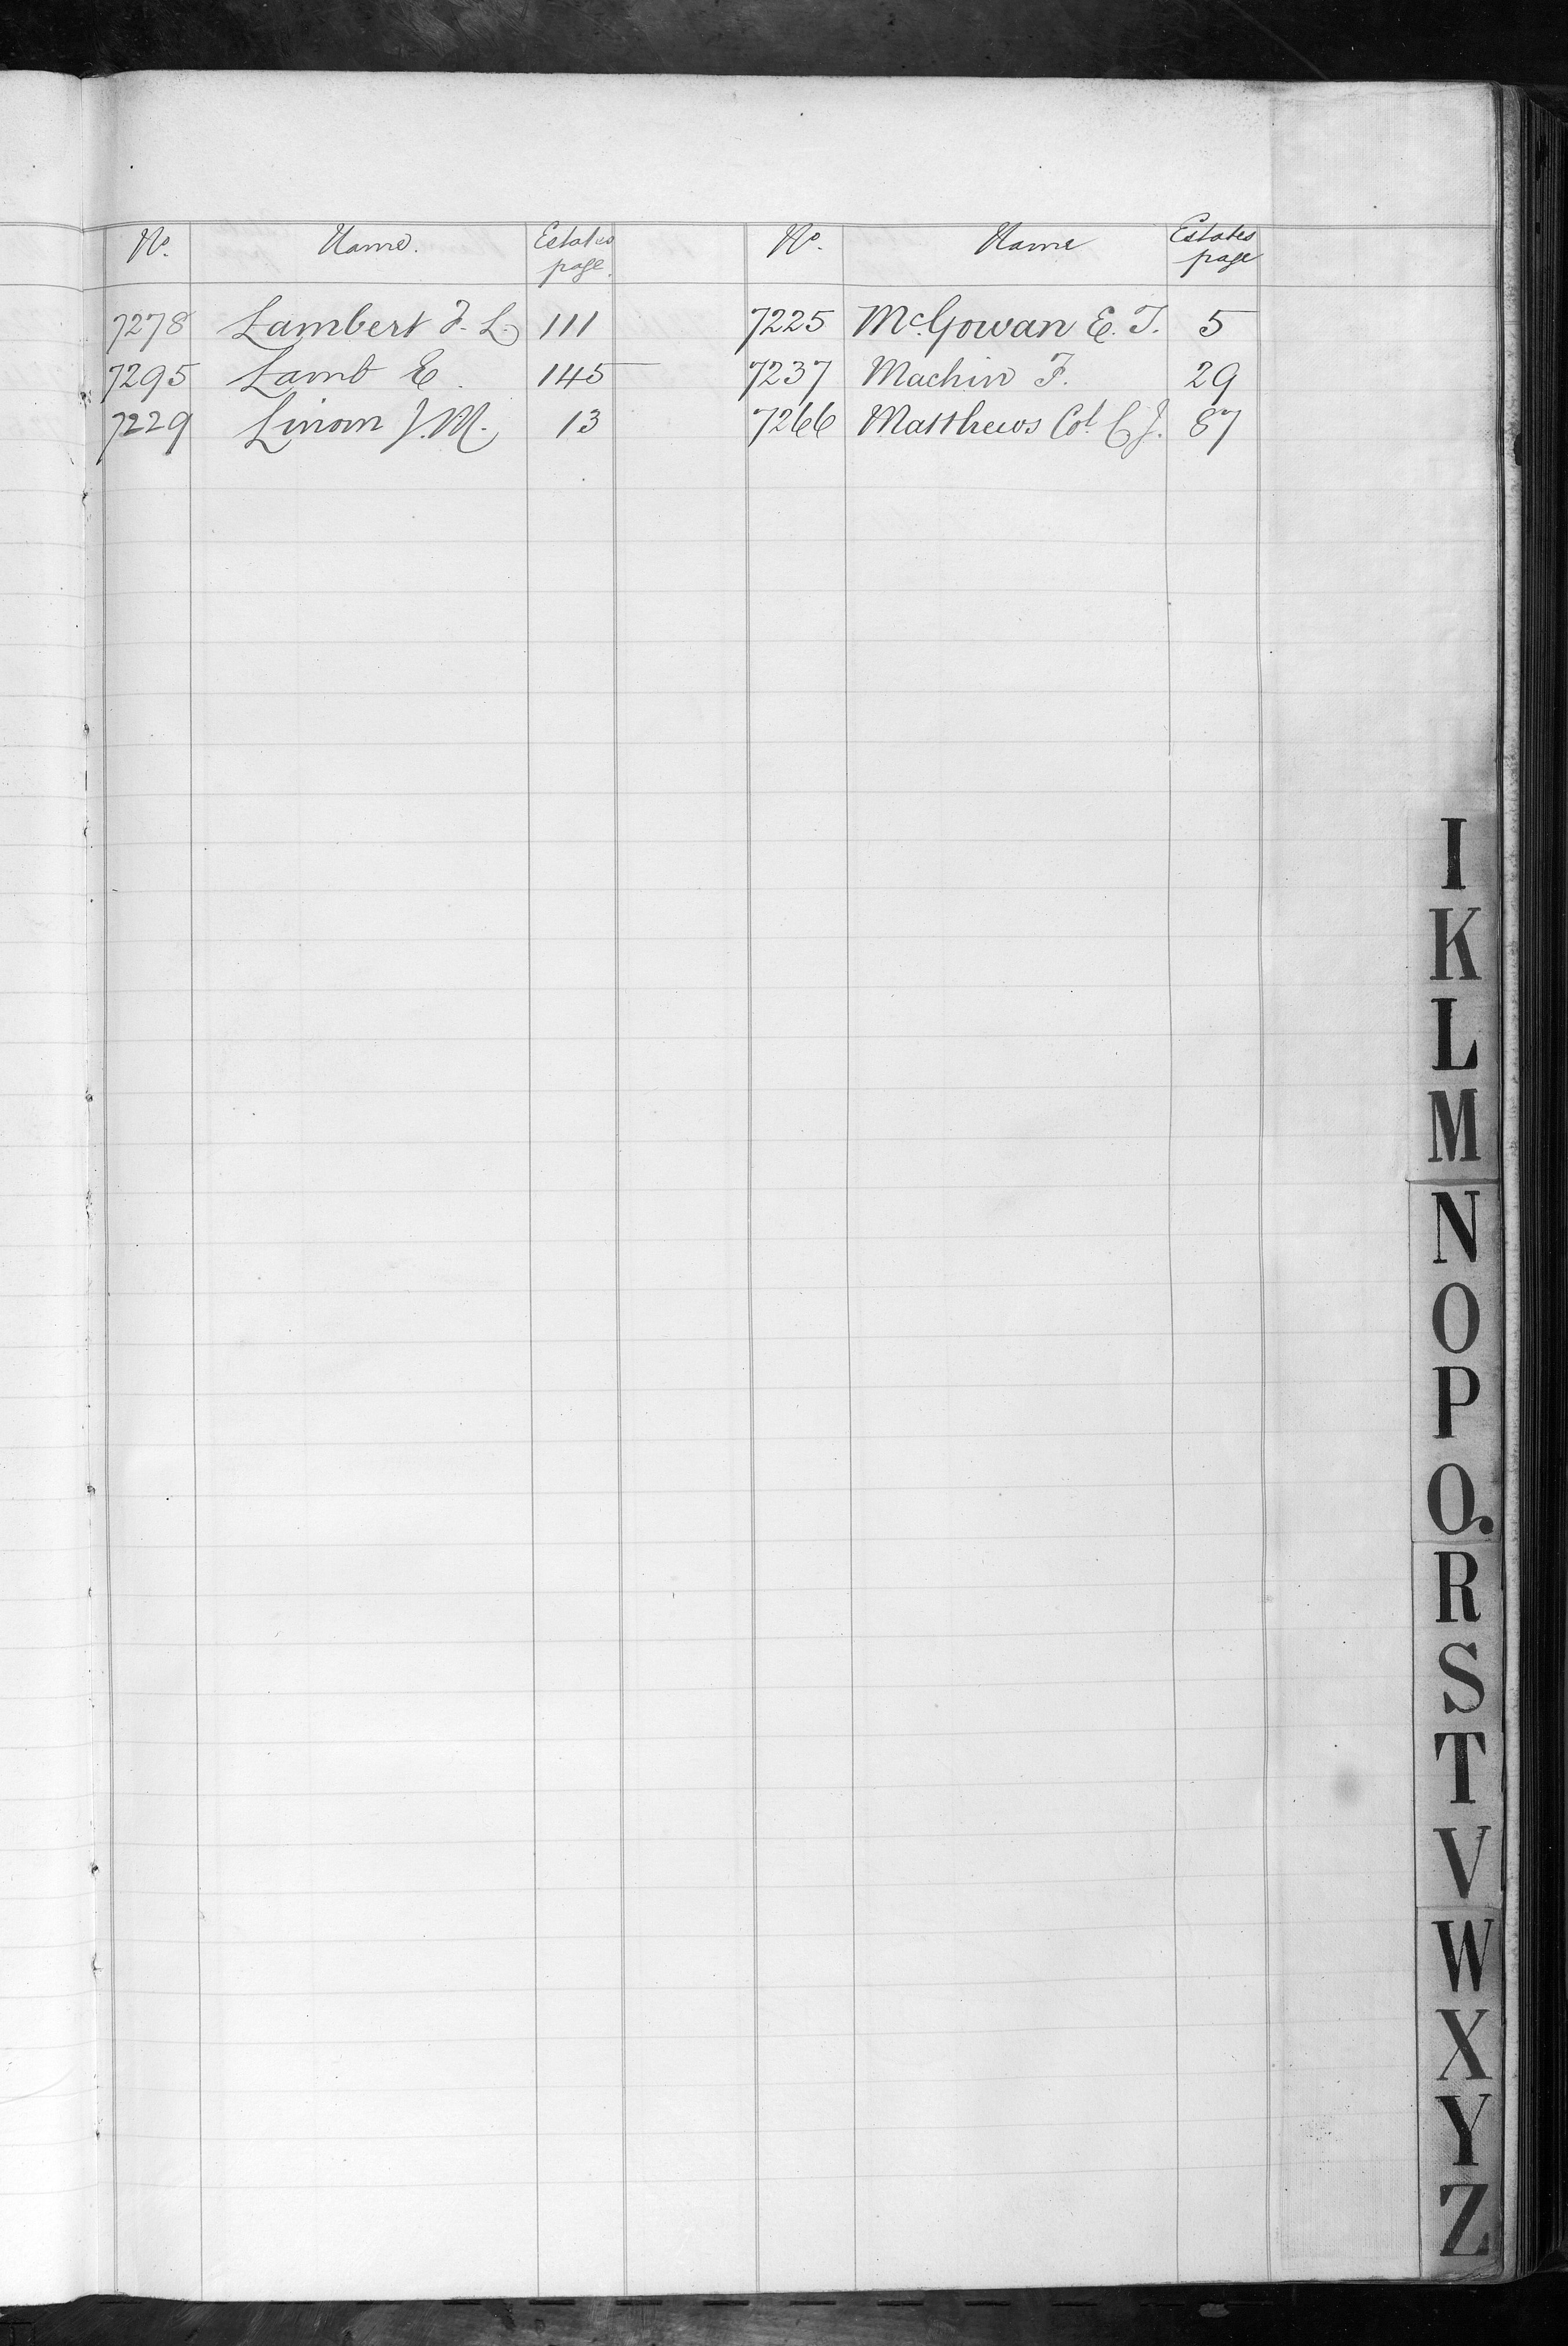 No. Name. Estates page.
7278 Lambert F. L. 111
7295 Lamb E. 145
7229 Linom J. M. 13
No. Name Estates page
7225 McGowan E. T. 5
7237 Machin F. 29
7266 Matthews Col. C J. 87
I
K
L
M
N
O
P
Q
R
S
T
V
W
X
Y
Z